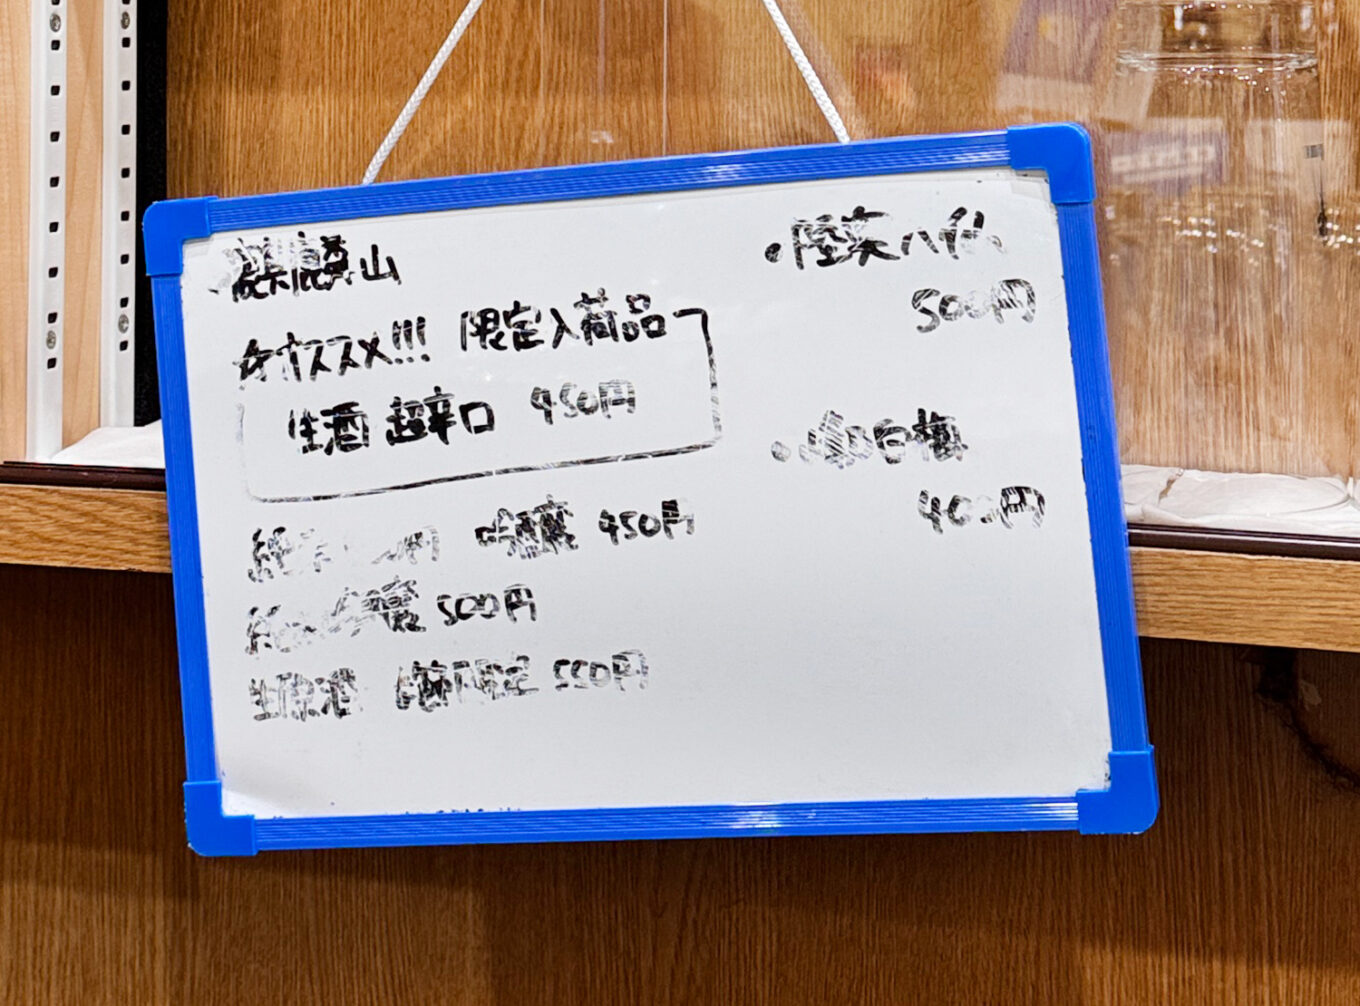 麒麟山
★オススメ!!! 限定入荷品
生酒 超辛口 450円
円 吟醸 450円
吟醸 500円
生原酒 限定 550円
・陸奥八仙
500円
・加白梅
400円